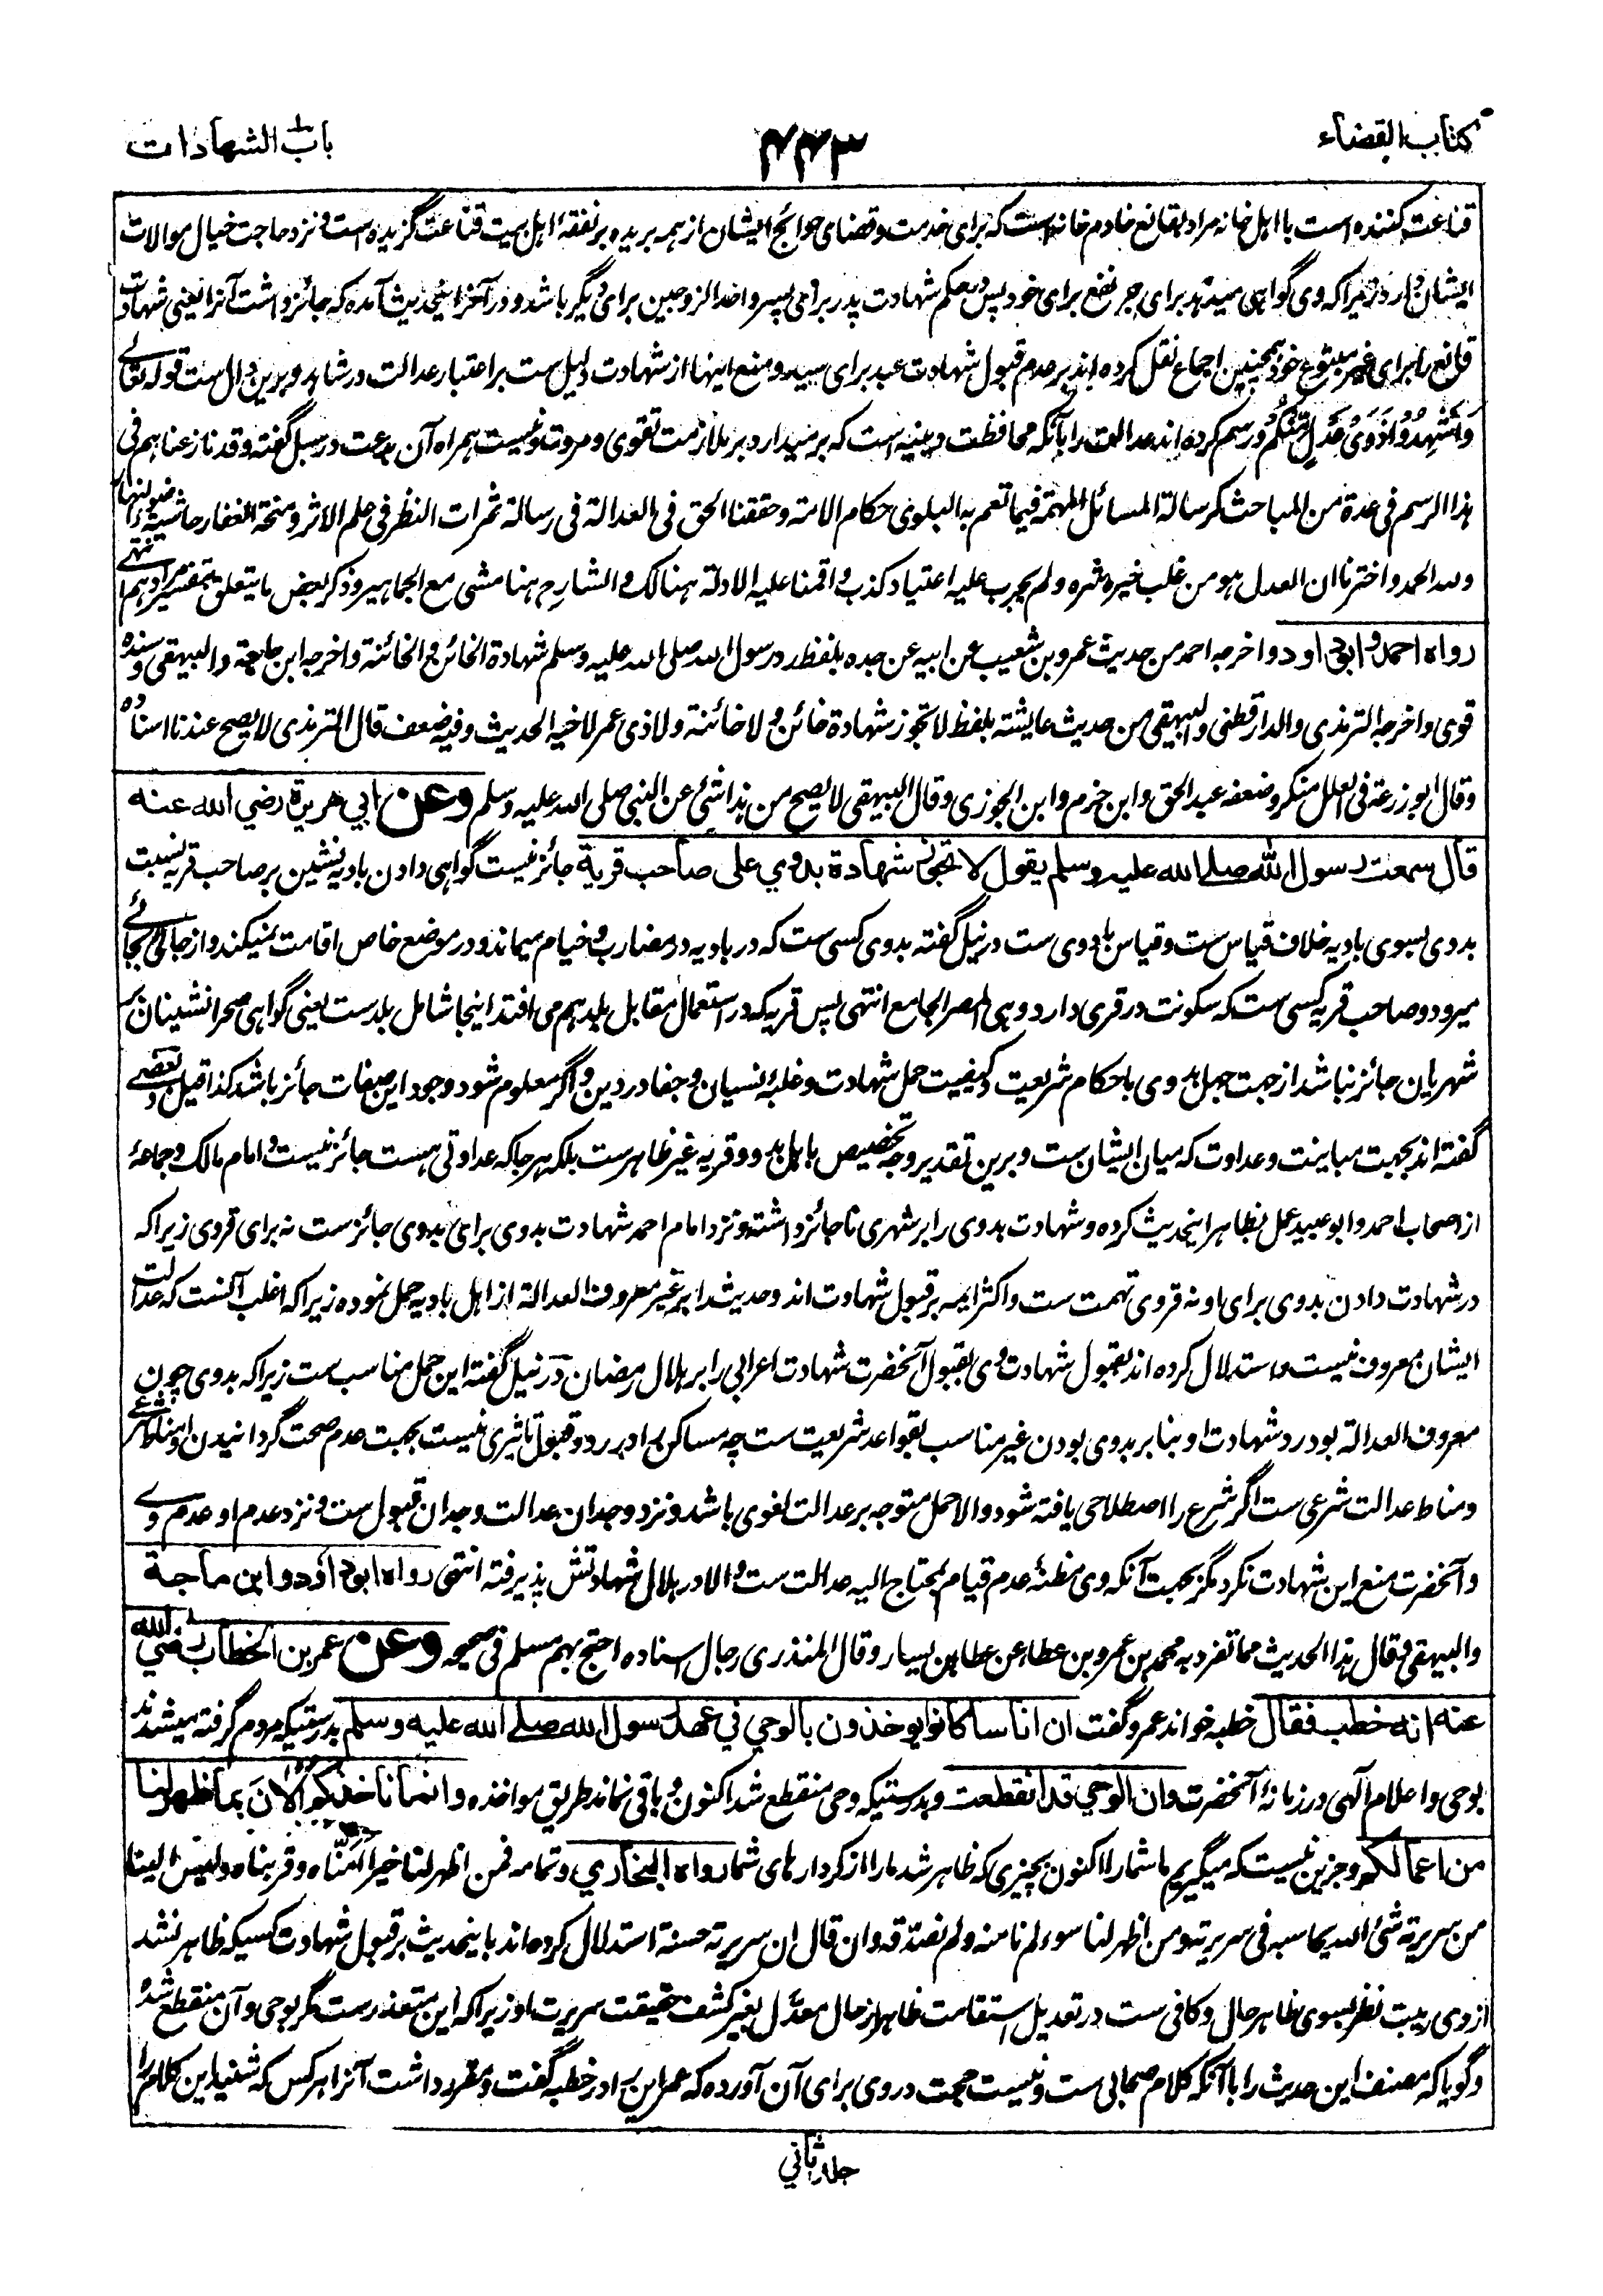 کتاب القضاء
۴۴۳
باب الشهادات
قناعت کننده است با اهل خانه مراد بقانع خادم خانه است که برای خدمت و قضای حوائج ایشان از همه بریده بر نفقۀ اهل بیت قناعت گزیده است و نزد حاجت خیال موالات
ایشان دارد زیرا که وی گواهی میدهد برای جر نفع برای خود پس در حکم شهادت پدر برای پسر و احد الزوجین برای دیگر باشد و در آخر اینحدیث آمده که جائز داشت آنرا یعنی شهادت
قانع را برای غیر متبوع خود همچنین اجماع نقل کرده اند بر عدم قبول شهادت عبد برای سید و منع اینها از شهادت دلیل ست بر اعتبار عدالت در شاهد و برین دال ست قوله تعالے
وَاَشْهِدُوْا ذَوَیْ عَدْلٍ مِّنْکُمْ و رسم کرده اند عدالت را بآنکه محافظت دینیه است که بر میدارد بر ملازمت تقوی و مروت و نیست همراه آن بدعت در سبل گفته و قد نازعناهم فی
هذا الرسم فی عدة من المباحث کرسالة المسائل المهمة فیما تعم به البلوی حکام الامة و حققنا الحق فی العدالة فی رسالة ثمرات النظر فی علم الاثر و منحة الغفار حاشیة ضوء النهار
و لله الحمد و اخترنا ان العدل هو من غلب خیره شره و لم یجرب علیه اعتیاد کذب و اقمنا علیه الادلة هنالک و الشارح هنا مشی مع الجماهیر و ذکر بعض ما یتعلق بتفسیر مرادهم انتهے
رواه احمد و ابو داود و اخرجه احمد من حدیث عمرو بن شعیب عن ابیه عن جده بلفظ رد رسول الله صلی الله علیه و سلم شهادة الخائن و الخائنة و اخرجه ابن ماجة و البیهقی و سنده
قوی و اخرجه الترمذی و الدارقطنی و البیهقی من حدیث عایشة بلفظ لا تجوز شهادة خائن و لا خائنة و لا ذی غمر لاخیه الحدیث و فیه ضعف قال الترمذی لا یصح عندنا اسناده
و قال ابو زرعة فی العلل منکر و ضعفه عبد الحق و ابن حزم و ابن الجوزی و قال البیهقی لا یصح من هذا شئ عن النبی صلی الله علیه و سلم وعن ابي هريرة رضي الله عنه
قال سمعت رسول الله صلے الله عليه وسلم يقول لا تجوز شهادة بدوي على صاحب قرية جائز نیست گواهی دادن بادیه نشین بر صاحب قریه نسبت
بدوی بسوی بادیه خلاف قیاس ست و قیاس بادوی ست در نیل گفته بدوی کسی ست که در بادیه در مضارب و خیام میماند و در موضع خاص اقامت نمیکند و از جائی بجائے
میرود و صاحب قریه کسی ست که سکونت در قری دارد و هی المصر الجامع انتهی پس قریه که در استعمال مقابل بلد هم می افتد اینجا شامل بلد ست یعنی گواهی صحرا نشینان بر
شهریان جائز نباشد از جهت جهل بدوی با حکام شریعت و کیفیت حمل شهادت و غلبۀ نسیان و جفا در دین و اگر معلوم شود وجود این صفات جائز باشد کذا قیل و بعضے
گفته اند بجهت مباینت و عداوت که میان ایشان ست و برین تقدیر وجه تخصیص باهل بدو و قریه غیر ظاهر ست بلکه هر جا که عداوتی هست جائز نیست و امام مالک و جماعۀ
از اصحاب احمد و ابو عبید عمل بظاهر اینحدیث کرده و شهادت بدوی را بر شهری نا جائز داشته و نزد امام احمد شهادت بدوی برای بدوی جائز ست نه برای قروی زیرا که
در شهادت دادن بدوی برای او نه قروی تهمت ست و اکثر ایمه بر قبول شهادت اند و حدیث را بر غیر معروف العدالة از اهل بادیه حمل نموده زیرا که اغلب آنست که عدالت
ایشان معروف نیست و استدلال کرده اند بقبول شهادت وی بقبول آنحضرت شهادت اعرابی را بر هلال رمضان در نیل گفته این حمل مناسب ست زیرا که بدوی چون
معروف العدالة بود رد شهادت او بنا بر بدوی بودن غیر مناسب بقواعد شریعت ست چه مساکن را در رد و قبول تاثیری نیست بجهت عدم صحت گردانیدن او مناط شرعے
و مناط عدالت شرعی ست اگر شرع را اصطلاحی یافته شود و الا حمل متوجه بر عدالت لغوی باشد و نزد وجدان عدالت وجدان قبول ست و نزد عدم او عدم وے
و آنحضرت منع این شهادت نکرد مگر بجهت آنکه وی مظنۀ عدم قیام بمحتاج الیه عدالت ست و الا در هلال شهادتش پذیرفته انتهی رواه ابو داؤد و ابن ماجة
و البیهقی و قال هذا الحدیث مما تفرد به محمد بن عمرو بن عطاء عن عطا بن یسار و قال المنذری رجال اسناده احتج بهم مسلم فی صحیحه وعن عمر بن الخطاب رضي الله
عنه انه خطب فقال خطبه خواند عمر و گفت ان اناسا كانوا يؤخذون بالوحي في عهد رسول الله صلے الله عليه وسلم بدرستیکه مردم گرفته میشدند
بوحی و اعلام آلهی در زمانۀ آنحضرت وان الوحي قد انقطعت و بدرستیکه وحی منقطع شد اکنون و باقی نماند طریق مواخذه وانما ناخذكم الآنَ بما ظهر لنا
من اعمالكم و جز این نیست که میگیریم ما شمارا اکنون بچیزی که ظاهر شد مارا از کردارهای شما رواه البخاري و تمامه فمن اظهر لنا خیرا اَمَنّاه و قربناه و لیس الینا
من سریرته شئ الله یحاسبه فی سریرته و من اظهر لنا سوء لم نامنه و لم نصدقه و ان قال ان سریرته حسنة استدلال کرده اند باینحدیث بر قبول شهادت کسیکه ظاهر نشد
از وی ریبت نظر بسوی ظاهر حال و کافی ست در تعدیل استقامت ظاهر از حال معدّل بغیر کشف حقیقت سریرت او زیرا که این متعذر ست مگر بوحی و آن منقطع شده
و گویا که مصنف این حدیث را با آنکه کلام صحابی ست و نیست حجت در وی برای آن آورده که عمر این را در خطبه گفت و مقرر داشت آنرا هر کس که شنید این کلام را
جلد ثاني